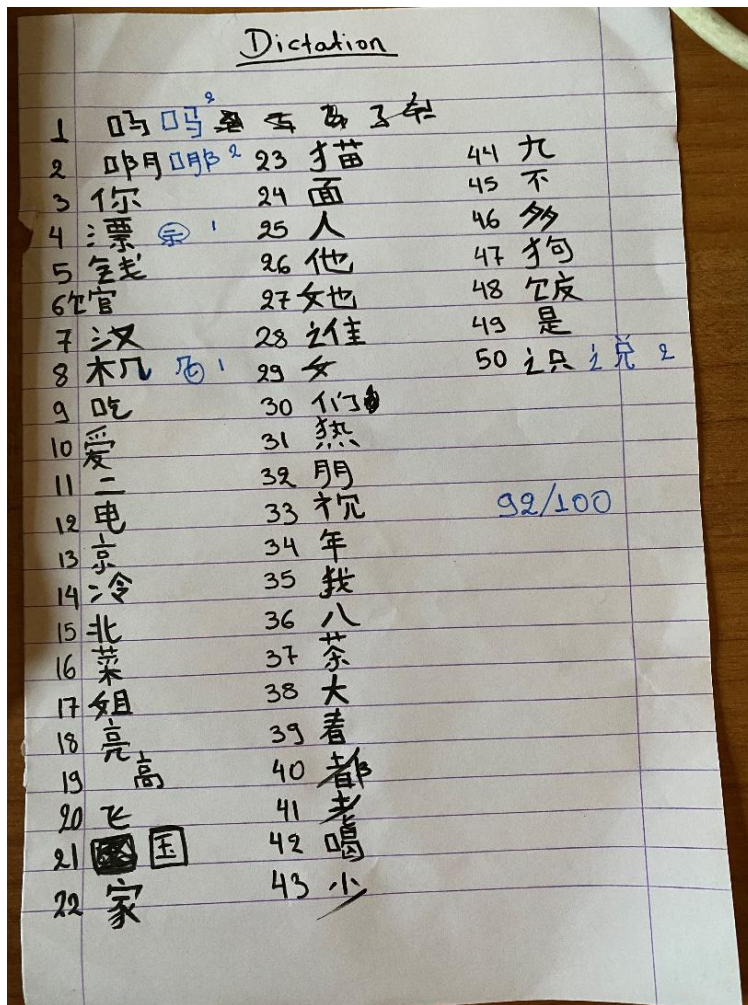 Dictation
1 吗 吗 2
2 哪 哪 2
3 你
4 漂 示 1
5 钱
6 馆
7 汉
8 机 几 1
9 吃
10 爱
11 二
12 电
13 京
14 冷
15 北
16 菜
17 姐
18 亮
19 高
20 飞
21 国
22 家
23 猫
24 面
25 人
26 他
27 她
28 谁
29 女
30 们
31 热
32 朋
33
34 年
35 我
36 八
37 茶
38 大
39 看
40 都
41 老
42 喝
43 少
44 九
45 不
46 多
47 狗
48 饭
49 是
50 识 说 2
92/100